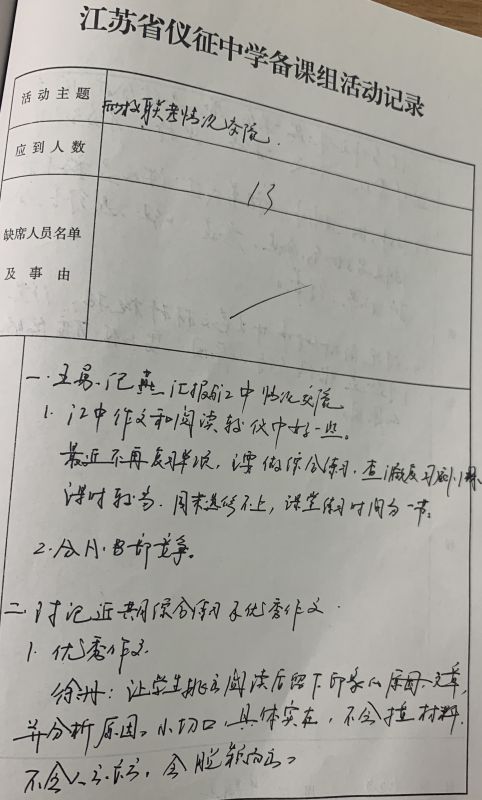 江苏省仪征中学备课组活动记录
活动主题 两校联考情况交流.
应到人数 13
缺席人员名单
及事由
一. 王易. 汇报江中情况交流
1. 江中作文和阅读较仪中好一些。
最近不再复习单项, 要做综合练习.
课时较为. 周末 不上, 课堂练习时间为一节。
2. 分A.B部竞争。
二. 讨论近期综合练习及优秀作文.
1. 优秀作文.
徐: 让学生挑选阅读后留下印象的原因.文章,
并分析原因。小切口, 具体实在, 不会挂材料.
不会人云亦云, 会脱颖而出。